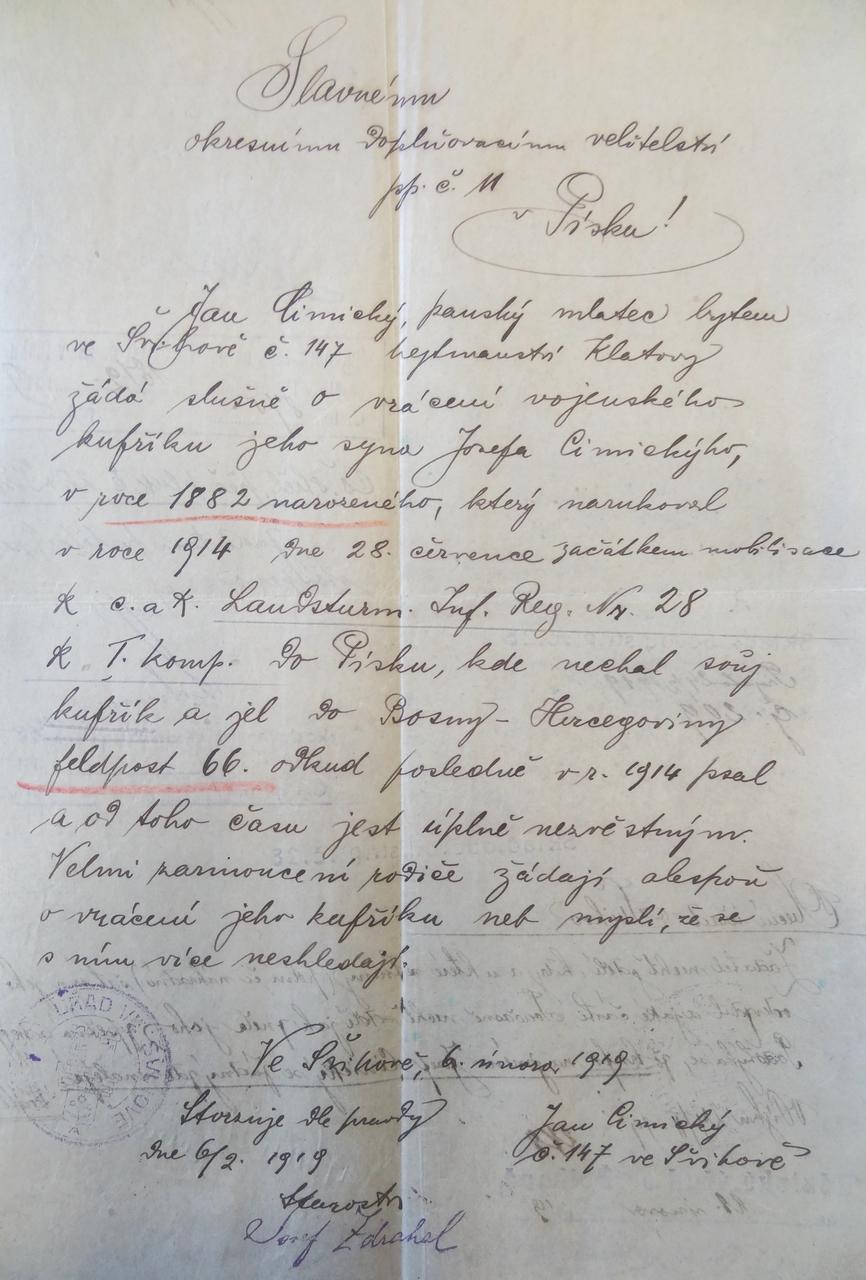 Slavnému
okresnímu doplňovacímu velitelství
pp. č. 11
v Písku!
Jan Cimický, panský mlatec bytem
ve Švihově č. 147 hejtmanství Klatovy
žádá slušně o vrácení vojenského
kufříku jeho syna Josefa Cimickýho,
v roce 1882 narozeného, který narukoval
v roce 1914 dne 28. července začátkem mobilisace
k c. a k. Landsturm. Inf. Reg. Nr. 28
k I. komp. do Písku, kde nechal svůj
kufřík a jel do Bosny-Hercegoviny
feldpost 66. odkud posledně v r. 1914 psal
a od toho času jest úplně nezvěstným.
Velmi zarmoucení rodiče žádají alespoň
o vrácení jeho kufříku neb myslí, že se
s ním více neshledají.
Ve Švihově, 6. února 1919
Stvrzuje dle pravdy
dne 6/2. 1919
Starosta
Josef Zdrahal
Jan Cimický
č. 147 ve Švihově